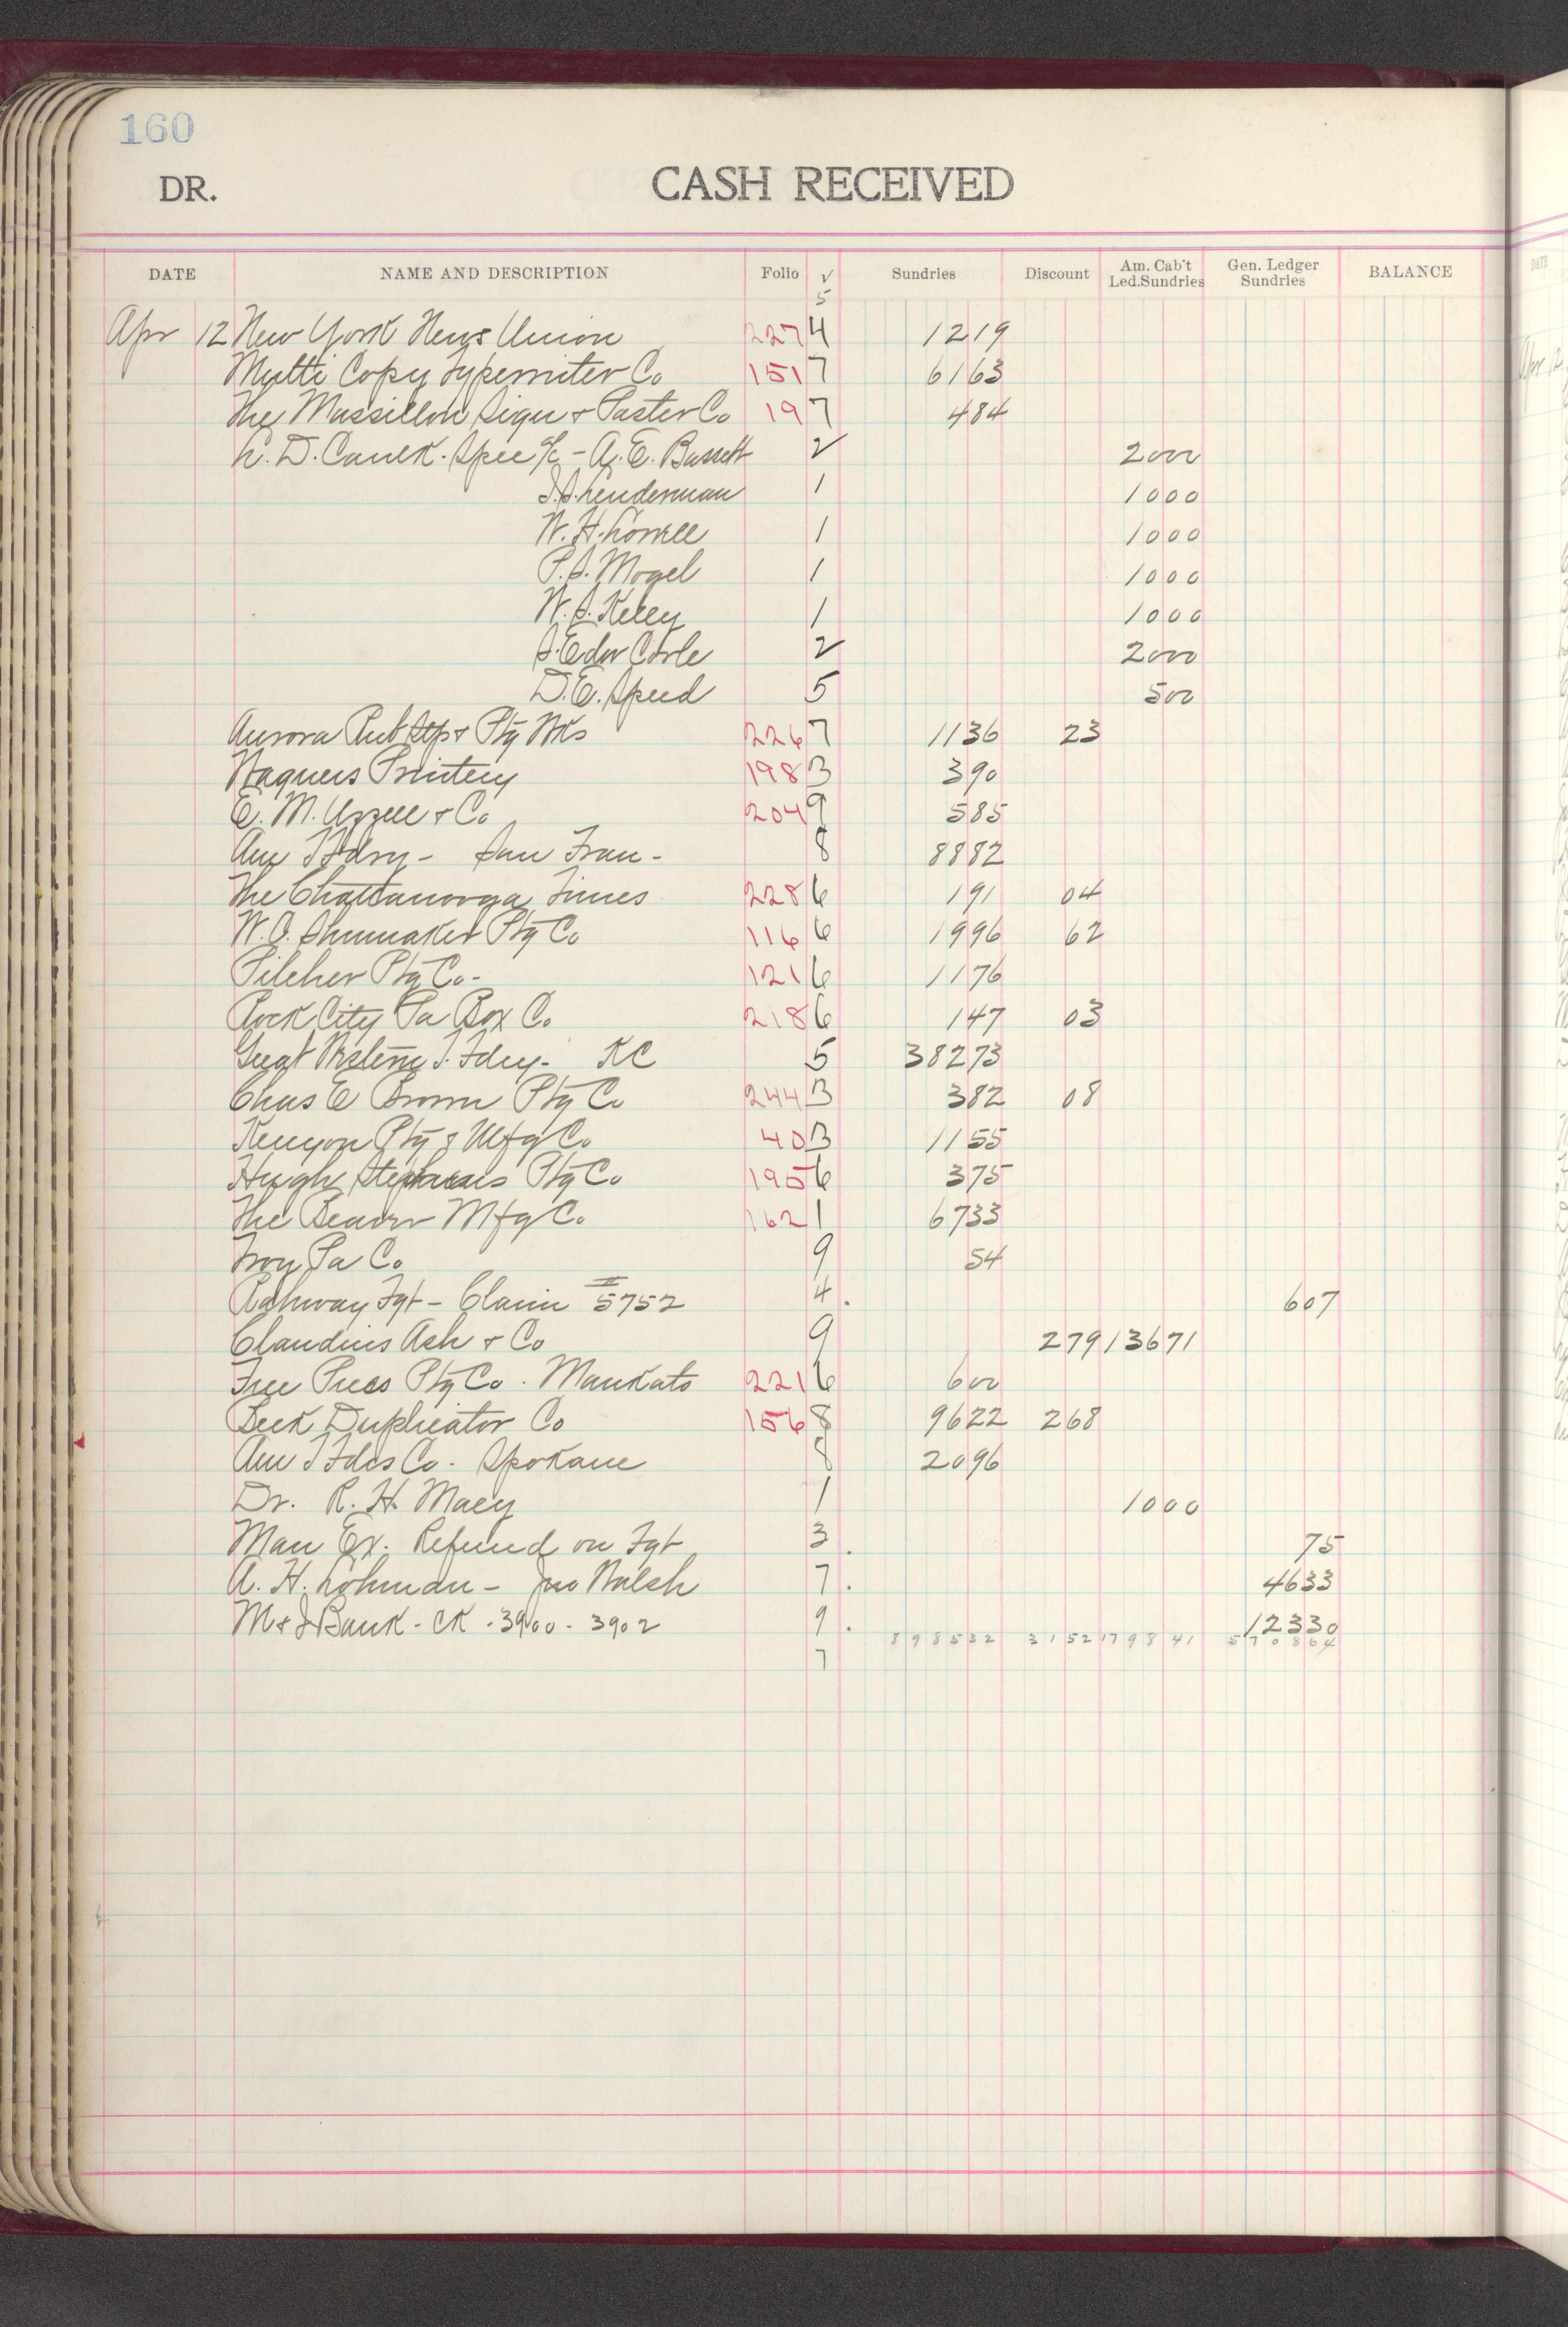 160
DR. CASH RECEIVED
DATE NAME AND DESCRIPTION Folio √ Sundries Discount Am. Cab't Led.Sundries Gen. Ledger Sundries BALANCE
5
Apr 12 New York News Union 227 4 12 19
Multi Copy Typewriter Co 151 7 61 63
The Massillon Sign & Poster Co 19 7 4 84
L. D. Caulk. Spec a/c - A. E. Bassett 2 20 00
Lenderman 1 10 00
W. H. 1 10 00
P. S. Mogel 1 10 00
W. S. Kelley 1 10 00
S. Edw Carle 2 20 00
D. E. Speed 5 5 00
Aurora Rub Stp & Ptg Wks 226 7 11 36 23
Wagners Printery 198 B 3 90
E. M. Uzzell & Co 204 9 5 85
Am T Fdry - San Fran - 8 88 82
The Chattanooga Times 228 6 1 91 04
W. C. Shumaker Ptg Co 116 6 19 96 62
Pilcher Ptg Co - 121 6 11 76
Rock City Pa Box Co 218 6 1 47 03
Great Western T. Fdry - KC 5 382 73
Chas E Brown Ptg Co 244 B 3 82 08
Kenyon Ptg & Mfg Co 40 B 11 55
Hugh Stephens Ptg Co 195 6 3 75
The Beaver Mfg Co 162 1 67 33
Troy Pa Co 9 54
Rahway Fgt - Claim # 5752 4 . 6 07
Claudius Ash & Co 9 2 79 136 71
Free Press Ptg Co . Mankato 221 6 6 00
Beck Duplicator Co 156 8 96 22 2 68
Am T Fdrs Co . Spokane 8 20 96
Dr. R. H. Macy 1 10 00
Man Ex. Refund on Fgt 3 . 75
A. H. Lohman - Jno Walsh 7 . 46 33
M & J Bank - CK . 3900 - 3902 9 . 123 30
8985 32 31 52 1798 41 5708 64
7
DATE
Apr 12